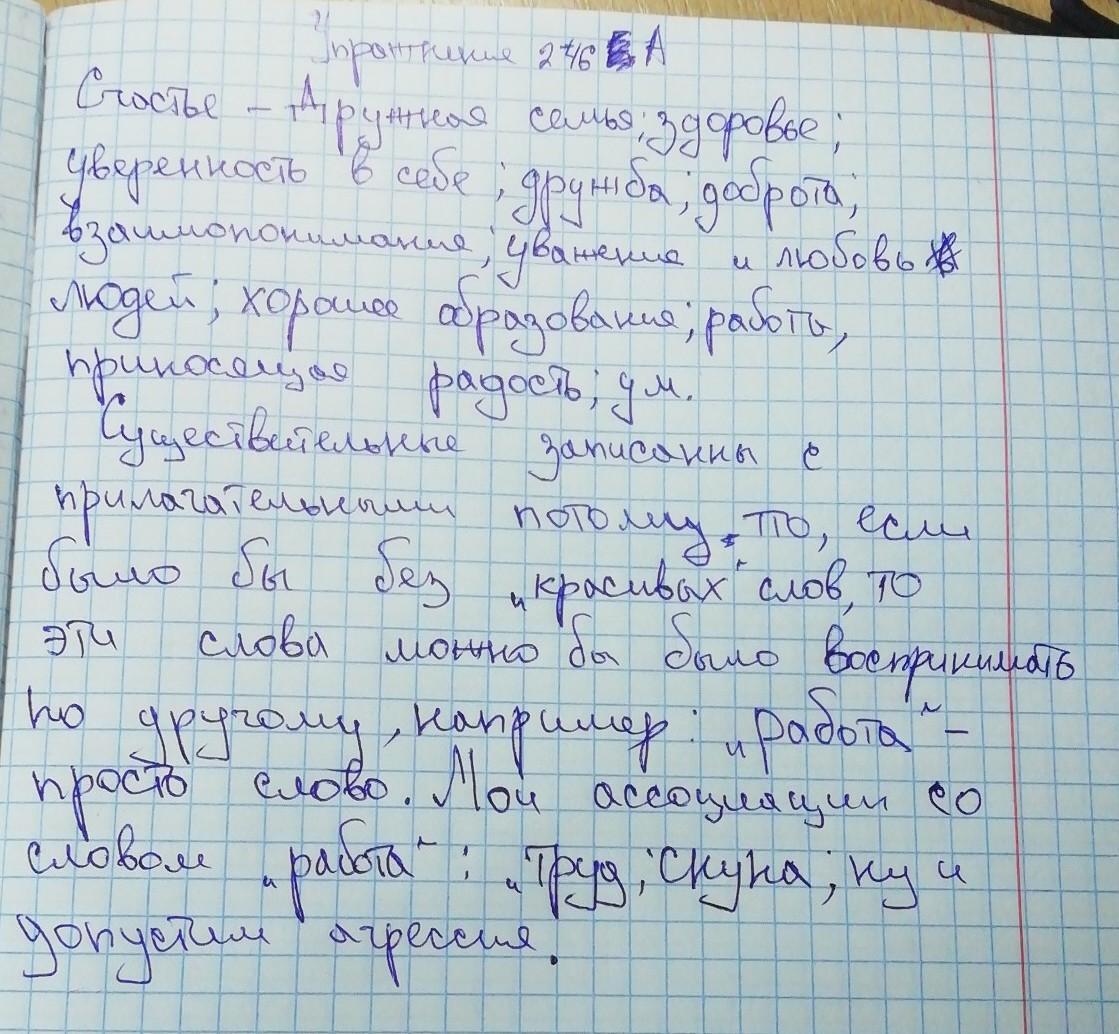 Упражнение 276 А
Счастье – Дружная семья; здоровье;
уверенность в себе; дружба; доброта;
взаимопонимание; уважение и любовь
людей; хорошее образование; работа,
приносящая радость; ум.
Существительные записанны с
прилагательными потому, то, если
было бы без „красивых" слов, то
эти слова можно бы было воспринимать
по другому, например: „работа" –
просто слово. Мои ассоциации со
словом „работа": „Труд; скука; ну и
допустим агрессия.